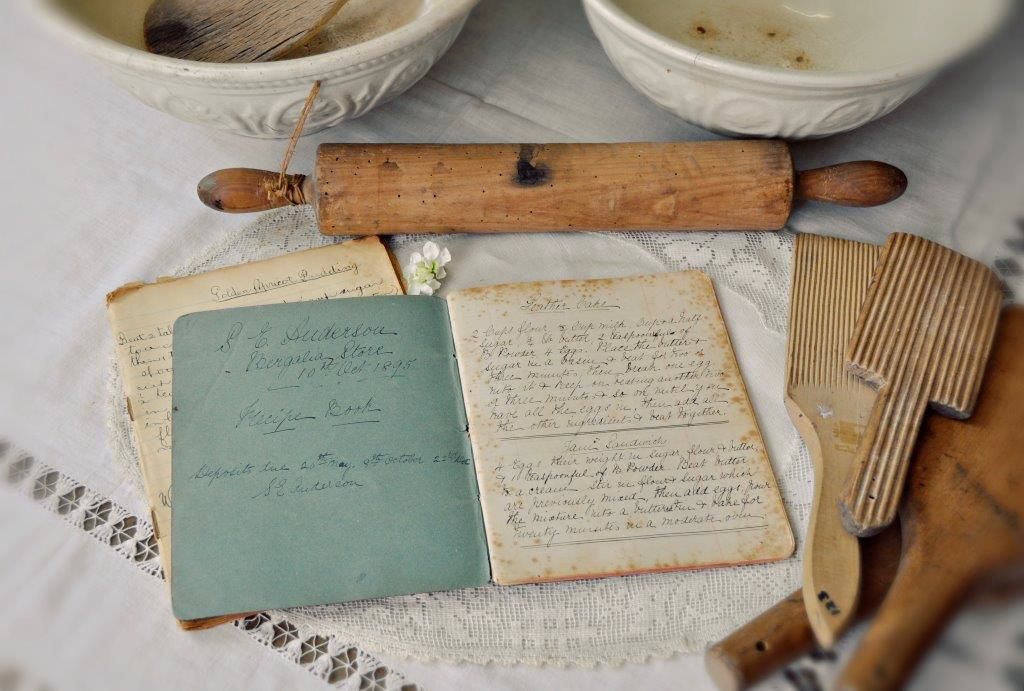 Golden Apricot Pudding
Beat 2 ta
S. E. Anderson
Bergalia Store
10th Oct 1895
Recipe Book
Deposits due 25th May, 9th October 22nd
S E Anderson
Feather Cake
2 Cups flour ½ Cup milk Cup & half
Sugar ½ lb butter 2 teaspoonfuls of
B Powder 4 Eggs. Place the butter &
sugar in a basin & beat for two or
three minutes, then break one egg
into it & keep on beating another two
or three minutes & so on until you
have all the eggs in, then add all
the other ingredients & beat together.
Jam Sandwich
4 Eggs their weight in sugar, flour & butter,
& 1 teaspoonful of B Powder Beat butter
to a cream Stir in flour & sugar which
are previously mixed, then add eggs, pour
the mixture into a buttered tin & bake for
twenty minutes in a moderate oven